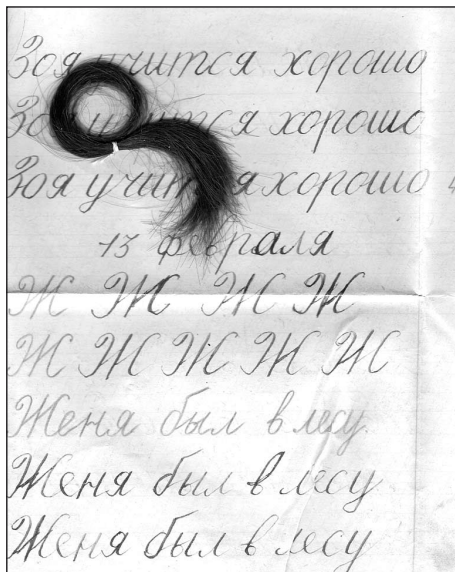 Зоя учится хорошо
Зоя учится хорошо
Зоя учится хорошо
13 февраля
Ж Ж Ж Ж
Ж Ж Ж Ж Ж
Женя был в лесу.
Женя был в лесу
Женя был в лесу